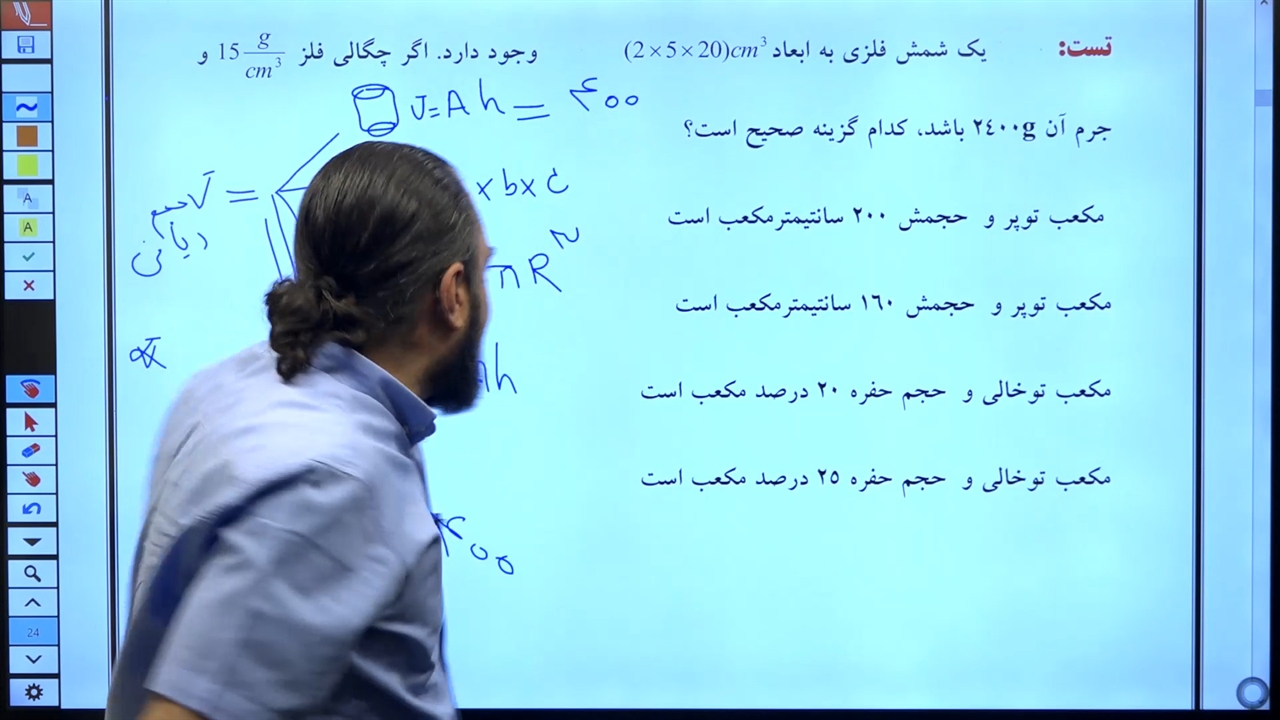 تست: یک شمش فلزی به ابعاد (2×5×20)cm³ وجود دارد. اگر چگالی فلز 15 g/cm³ و
جرم آن ٢٤٠٠g باشد، کدام گزینه صحیح است؟
مکعب توپر و حجمش ٢٠٠ سانتیمترمکعب است
مکعب توپر و حجمش ١٦٠ سانتیمترمکعب است
مکعب توخالی و حجم حفره ٢٠ درصد مکعب است
مکعب توخالی و حجم حفره ٢٥ درصد مکعب است
V=Ah= ۴۰۰
V =
×b×c
πR
Ah
۴۰۰
A
A
24